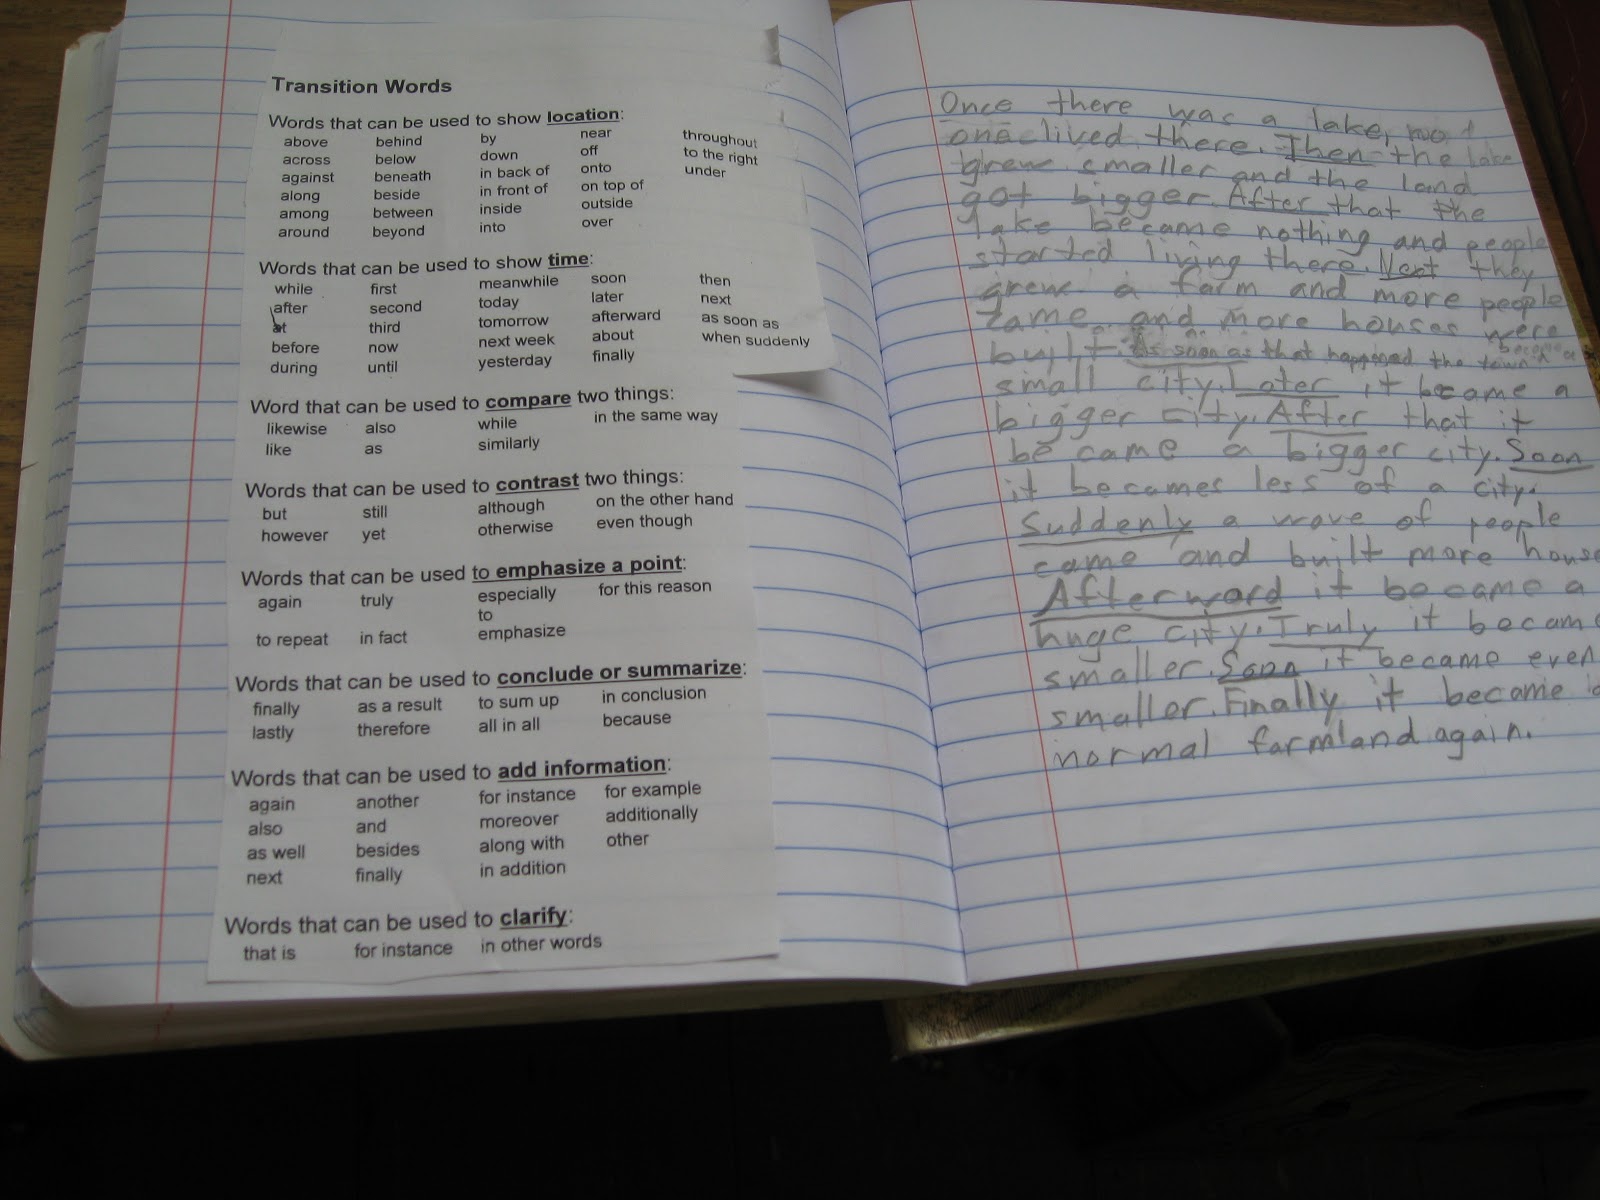 Transition Words
Words that can be used to show location:
above behind by near throughout
across below down off to the right
against beneath in back of onto under
along beside in front of on top of
among between inside outside
around beyond into over
Words that can be used to show time:
while first meanwhile soon then
after second today later next
at third tomorrow afterward as soon as
before now next week about when suddenly
during until yesterday finally
Word that can be used to compare two things:
likewise also while in the same way
like as similarly
Words that can be used to contrast two things:
but still although on the other hand
however yet otherwise even though
Words that can be used to emphasize a point:
again truly especially for this reason
to
to repeat in fact emphasize
Words that can be used to conclude or summarize:
finally as a result to sum up in conclusion
lastly therefore all in all because
Words that can be used to add information:
again another for instance for example
also and moreover additionally
as well besides along with other
next finally in addition
Words that can be used to clarify:
that is for instance in other words
Once there was a lake, not
one lived there. Then the lake
grew smaller and the land
got bigger. After that the
lake became nothing and people
started living there. Next they
grew a farm and more people
came and more houses were
built. As soon as that happened the town became a
small city. Later it became a
bigger city. After that it
be came a bigger city. Soon
it becames less of a city.
Suddenly a wave of people
came and built more hous
Afterword it became a
huge city. Truly it becam
smaller. Soon it became even
smaller. Finally it became
normal farmland again.